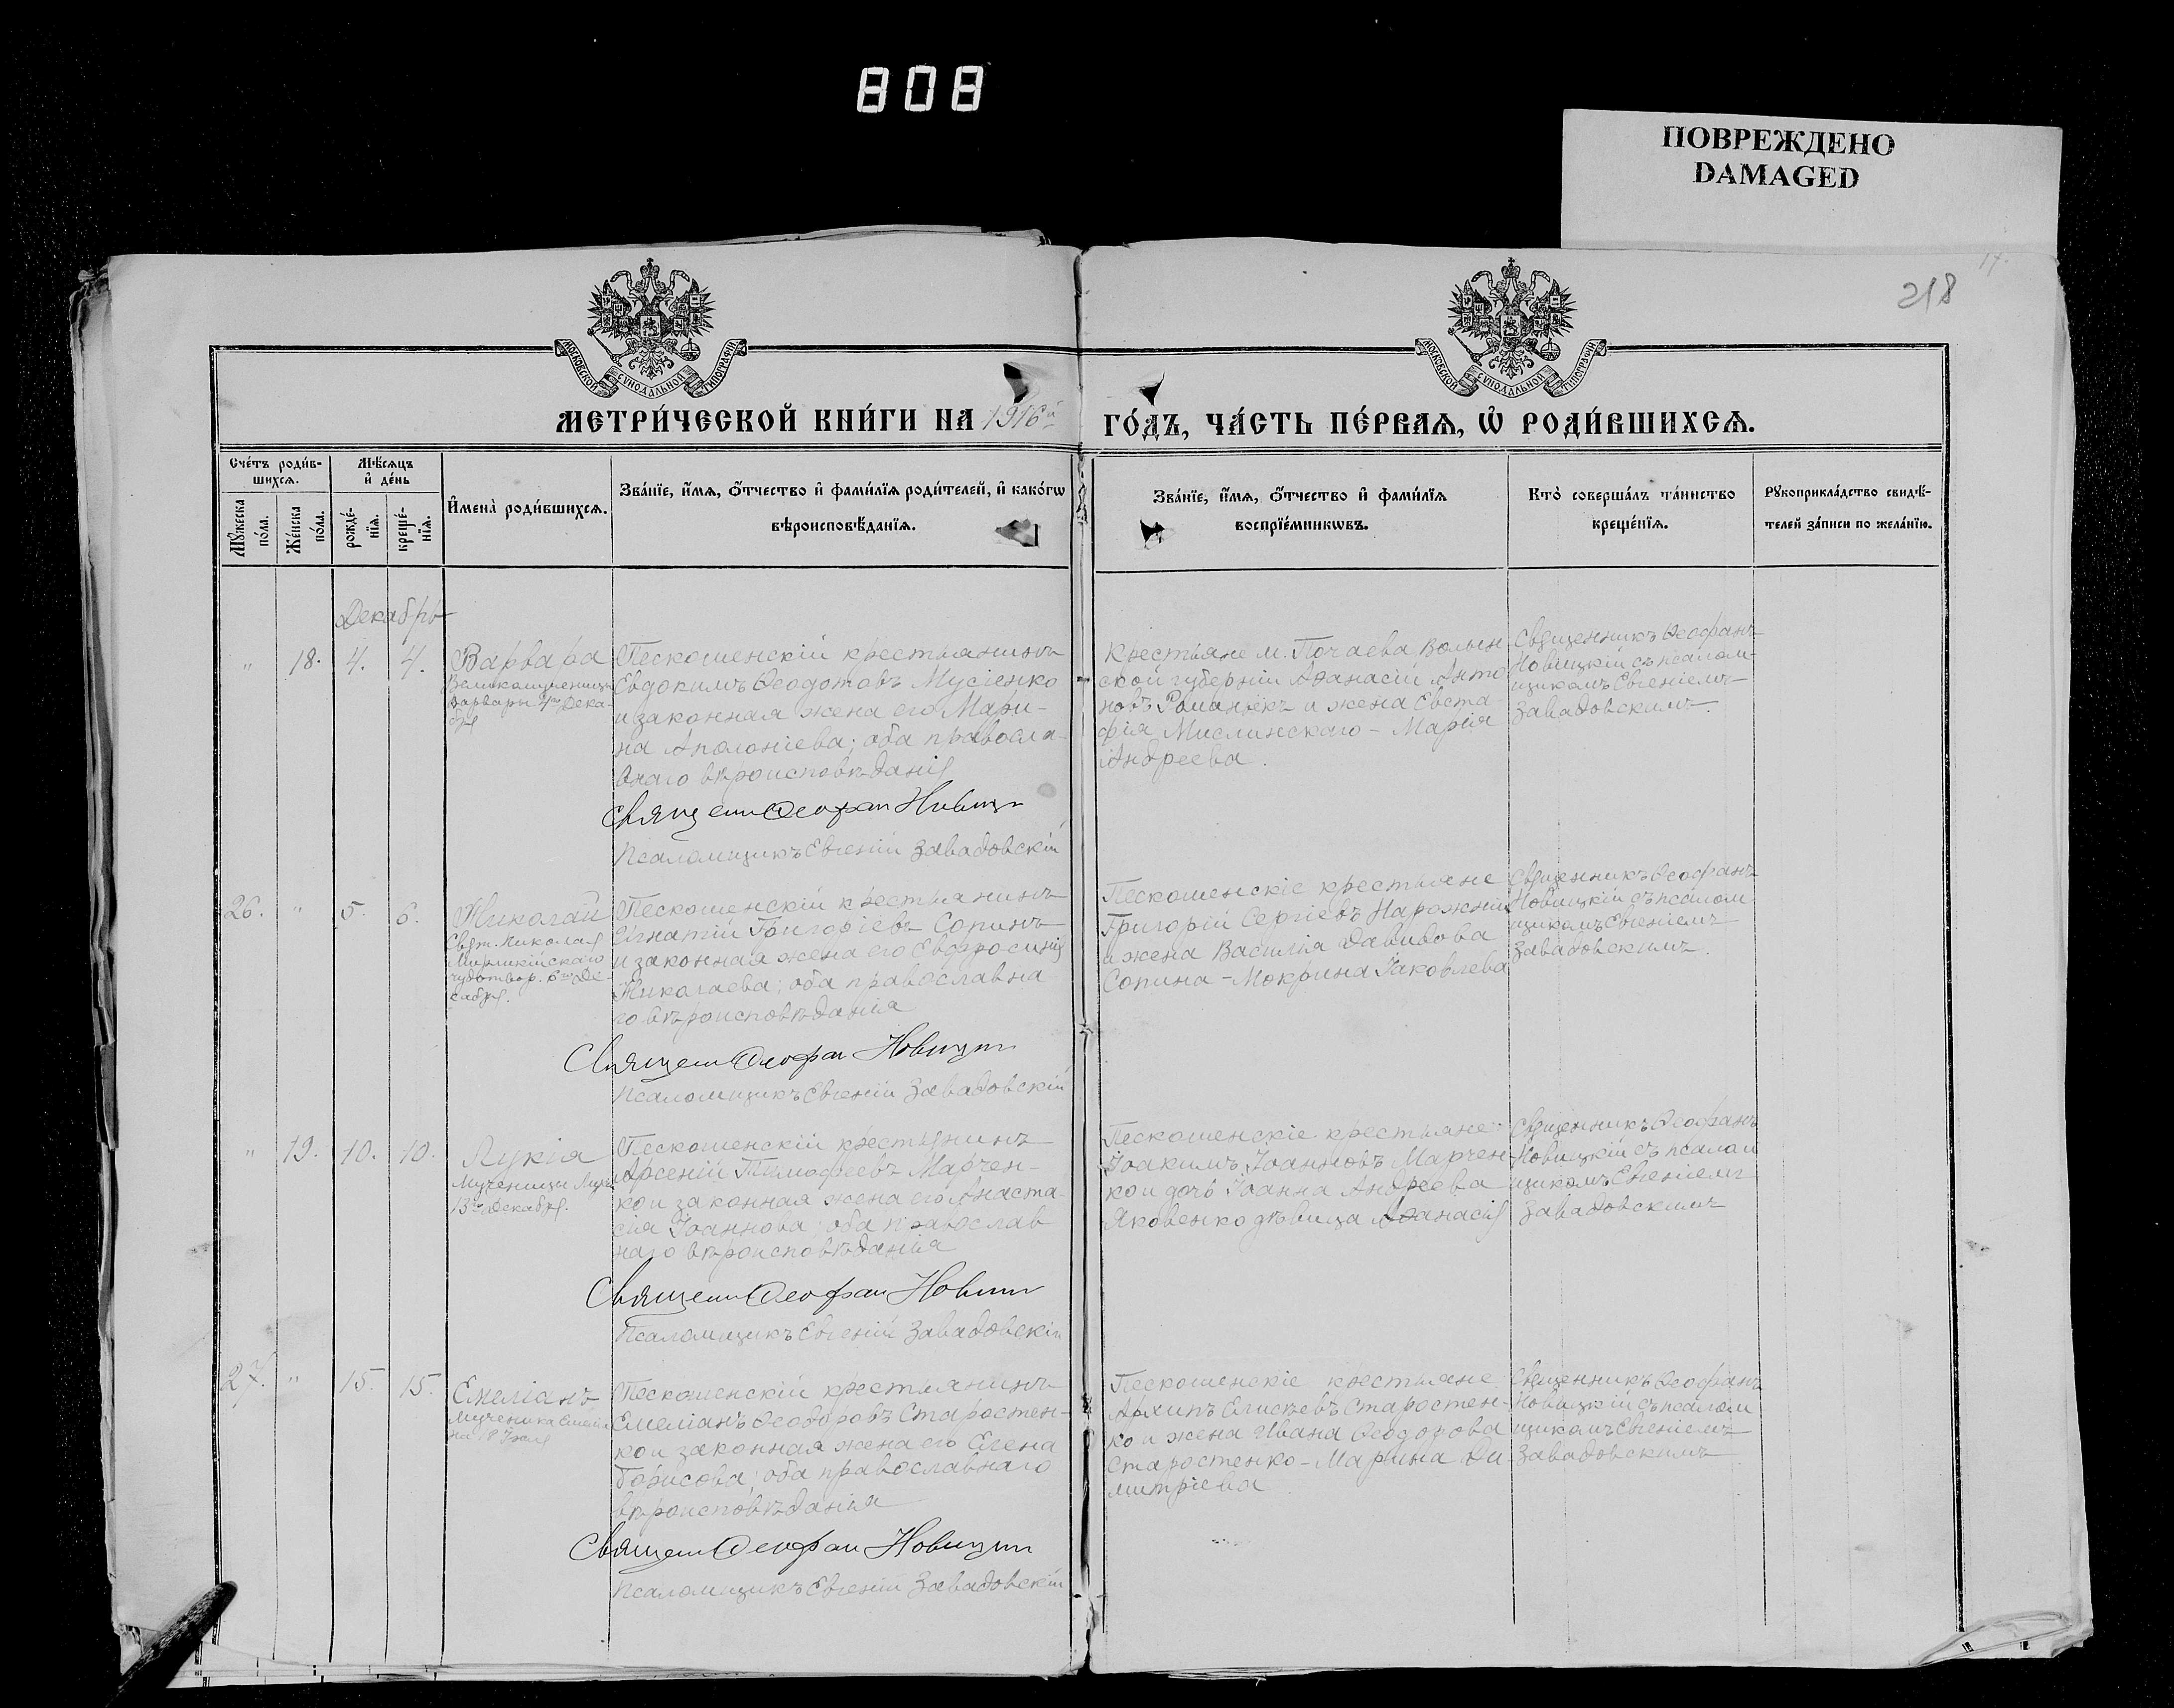 808
ПОВРЕЖДЕНО
DAMAGED
218
17.
МОСКОВСКОЙ СУНОДАЛЬНОЙ ТИПОГРАФІИ
МОСКОВСКОЙ СУНОДАЛЬНОЙ ТИПОГРАФІИ
МЕТРИ́ЧЕСКОЙ КНИ́ГИ НА 1916й ГО́ДЪ, ЧА́СТЬ ПЕ́РВАѦ, Ѡ҆ РОДИ́ВШИХСѦ.
Сче́тъ роди́в-
шихсѧ.
Мꙋ́жеска по́ла.
Же́нска по́ла.
Мѣ́сѧцъ
и҆ де́нь
рожде́-
нїѧ.
креще́-
нїѧ.
И҆мена̀ роди́вшихсѧ.
Зва́нїе, и҆́мѧ, ѻ҆́тчество и҆ фами́лїѧ роди́телей, и҆ како́гѡ
вѣроисповѣ́данїѧ.
Зва́нїе, и҆́мѧ, ѻ҆́тчество и҆ фами́лїѧ
воспрїе́мникѡвъ.
Кто̀ соверша́лъ та́инство
креще́нїѧ.
Рꙋкоприкла́дство свидѣ́-
телей за́писи по жела́нїю.
Декабрь
" 18. 4. 4.
Варвара
Великомученицы
Варвары 4го Дека-
бря
Пескошенскій крестьянинъ
Евдокимъ Ѳеодотовъ Мусіенко
и законная жена его Мари-
на Аполоніева; оба правосла-
внаго вѣроисповѣданія
Священ Ѳеофан Новицк
Псаломщикъ Евгеній Завадовскій
Крестьяне м. Почаева Волын
ской губерніи Аѳанасій Анто
новъ Романюкъ и жена Евста-
фія Мислинскаго - Марія
Андреева.
Священникъ Ѳеофанъ
Новицкій съ псалом-
щикомъ Евгеніемъ
Завадовскимъ.
26. " 5. 6.
Николай
Свят. Николая
Мирликійскаго
чудотвор. 6го Де-
кабря.
Пескошенскій крестьянинъ
Игнатій Григоріевъ Сопинъ
и законная жена его Евфросинія
Николаева; оба православна
го вѣроисповѣданія
Священ Ѳеофан Новицки
Псаломщикъ Евгеній Завадовскій
Пескошенскіе крестьяне
Григорій Сергіевъ Нарожній
и жена Василія Давидова
Сопина - Мокрина Іаковлева
Священникъ Ѳеофанъ
Новицкій съ псалом
щикомъ Евгеніемъ
Завадовскимъ.
" 19. 10. 10.
Лукія
Мученицы Лукіи
13го Декабря.
Пескошенскій крестьянинъ
Арсеній Тимофеевъ Марчен-
ко и законная жена его Анаста-
сія Іоаннова; оба православ
наго вѣроисповѣданія
Священ Ѳеофан Новицк
Псаломщикъ Евгеній Завадовскій
Пескошенскіе крестьяне
Іоакимъ Іоанновъ Марчен-
ко и дочь Іоанна Андреева
Яковенко дѣвица Аѳанасія
Священникъ Ѳеофанъ
Новицкій съ псалом
щикомъ Евгеніемъ
Завадовскимъ
27. " 15. 15.
Емеліанъ
Мученика Емеліа
на 18 Іюля
Пескошенскій крестьянинъ
Емеліанъ Ѳеодоровъ Старостен-
ко и законная жена его Елена
Борисова; оба православнаго
вѣроисповѣданія
Священ Ѳеофан Новицки
Псаломщикъ Евгеній Завадовскій
Пескошенскіе крестьяне
Архипъ Елисѣевъ Старостен-
ко и жена Ивана Ѳеодорова
Старостенко - Марина Ди
митріева
Священникъ Ѳеофанъ
Новицкій съ псалом
щикомъ Евгеніемъ
Завадовскимъ